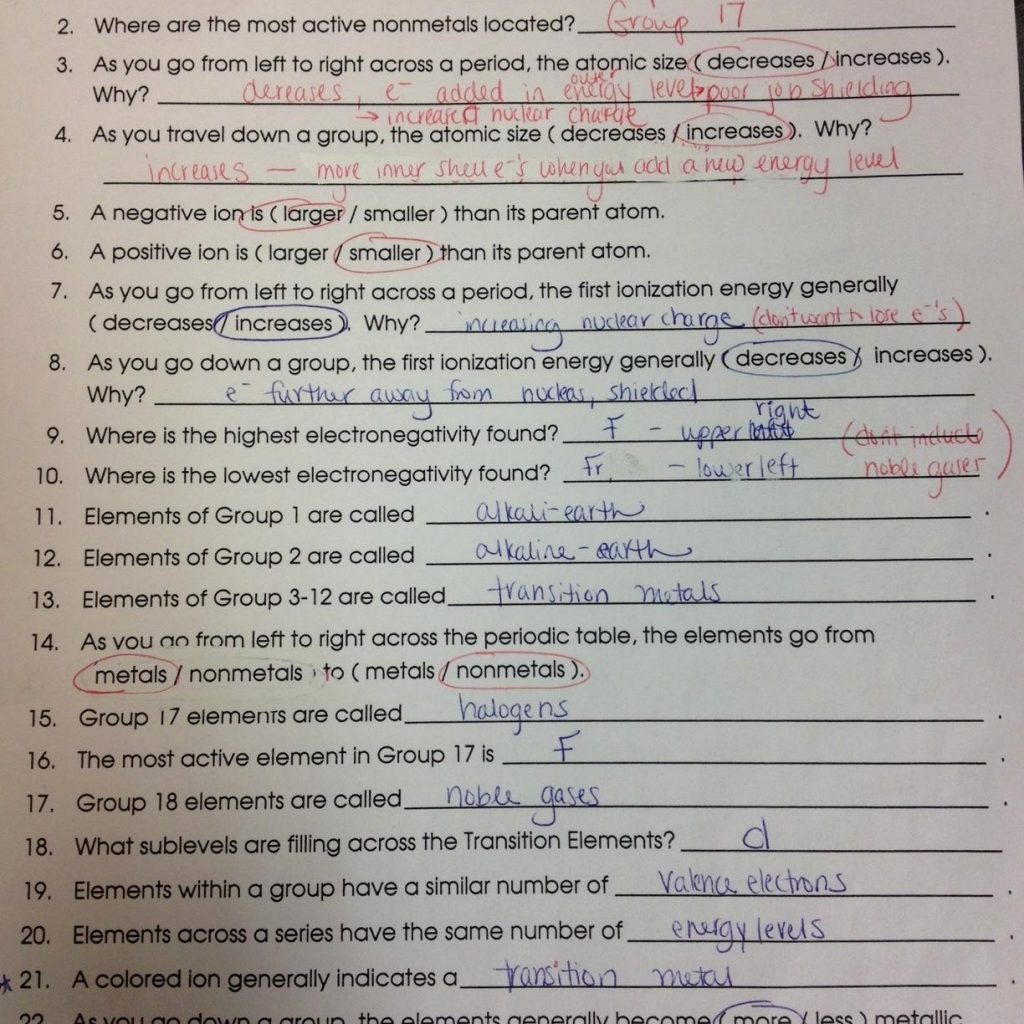 2. Where are the most active nonmetals located? Group 17
3. As you go from left to right across a period, the atomic size ( decreases / increases ).
Why? decreases, e⁻ added in outer energy level → poor job shielding
→ increased nuclear charge
4. As you travel down a group, the atomic size ( decreases / increases ). Why?
increases — more inner shell e⁻'s when you add a new energy level
5. A negative ion is ( larger / smaller ) than its parent atom.
6. A positive ion is ( larger / smaller ) than its parent atom.
7. As you go from left to right across a period, the first ionization energy generally
( decreases / increases ). Why? increasing nuclear charge (don't want to lose e⁻'s)
8. As you go down a group, the first ionization energy generally ( decreases / increases ).
Why? e⁻ further away from nucleas, shielded
9. Where is the highest electronegativity found? F - upper right (don't include
10. Where is the lowest electronegativity found? Fr - lower left noble gases)
11. Elements of Group 1 are called alkali-earth .
12. Elements of Group 2 are called alkaline-earth .
13. Elements of Group 3-12 are called transition metals .
14. As you go from left to right across the periodic table, the elements go from
metals / nonmetals ) to ( metals / nonmetals ).
15. Group 17 elements are called halogens .
16. The most active element in Group 17 is F .
17. Group 18 elements are called noble gases .
18. What sublevels are filling across the Transition Elements? d
19. Elements within a group have a similar number of valence electrons .
20. Elements across a series have the same number of energy levels .
* 21. A colored ion generally indicates a transition metal .
22. As you go down a group, the elements generally become ( more / less ) metallic